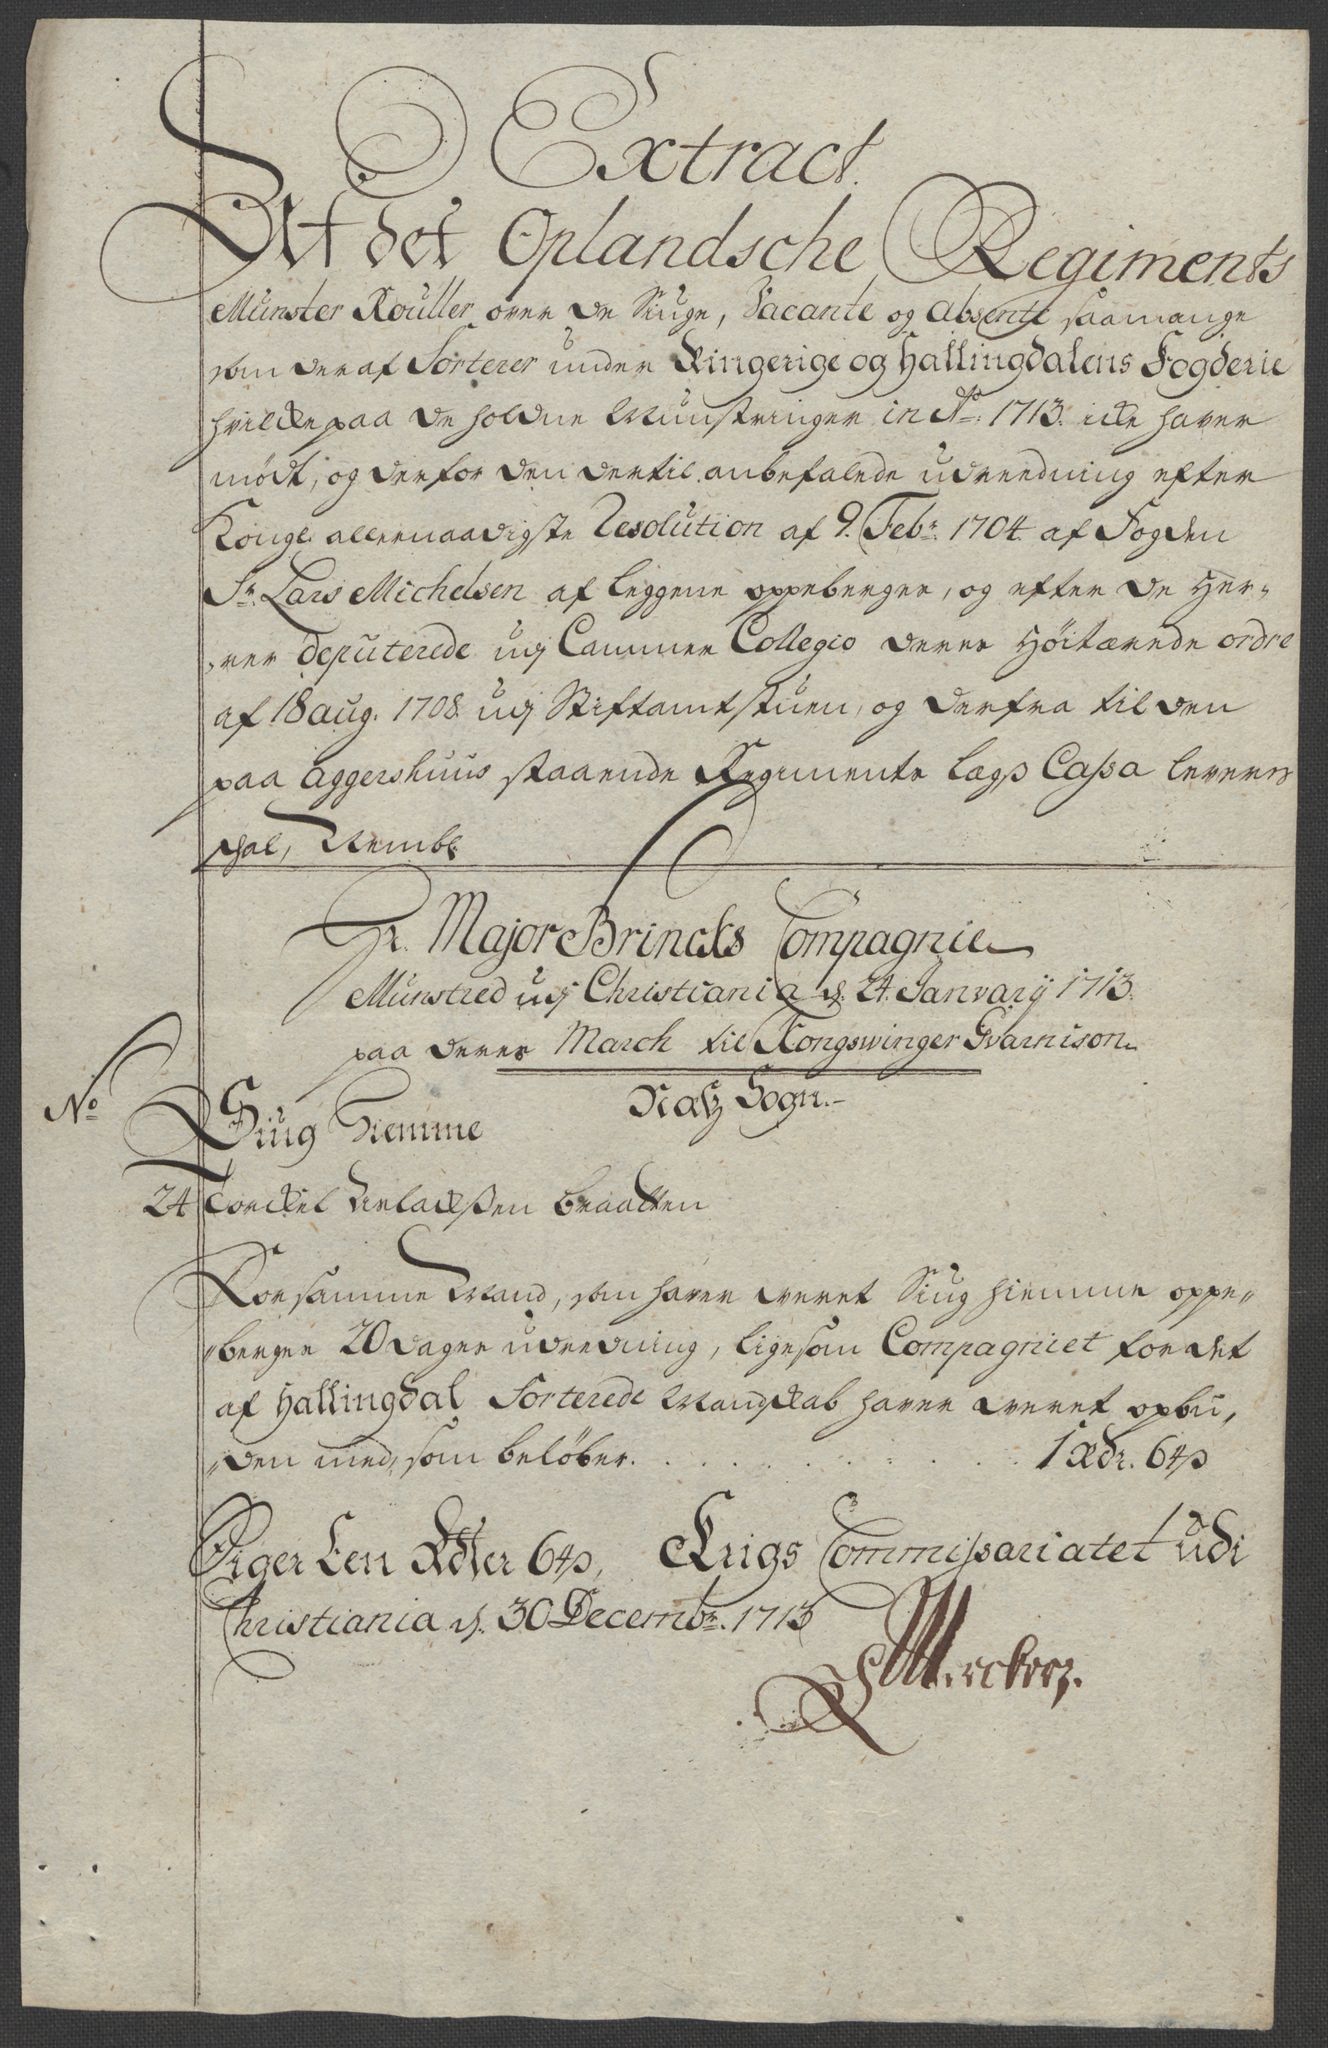 Extract
Af det Oplandsche Regiments
Munster Rouller over de Siuge, Vacante og absente saamange
som deraf Sorterer under Ringerige og Hallingdalens Fogderie
hvilcke paa de holdne Munstringer in Ao: 1713. icke haver
mødt, og derfor den dertil anbefalede udreedning efter
Kongl. allernaadigste Resolution af 9. Febr: 1704 af Fogden
Sr. Lars Michelsen af leggene oppeberger, og efter de Her,,
,,rer deputerede udj Cammer Collegio deres Høitærede ordre
af 18 aug. 1708 udj Stiftamtstuen, og derfra til den
paa Aggershuus staaende Regimente Lægs Cassa leveres
skal, Nembl.
Hr. Major Brincks Compagnie
Munstred udj Christiania d. 24. Janvarij 1713.
paa deres March til Kongswinger Gvarnison
Næss Sogn.
No
Siug Hiemme
24 Torckel Braatten
For samme Mand, som haver veret Siug hiemme oppe,,
,,berger 20 dager udredning, ligesom Compagniet for det
af Hallingdal Sorterede Mandskab haver veret opbu,,
,,den med, som beløber. . . . . . . . . 1 Rdr. 64 s
Siger Een Rdler 64 s, Krigs Commissariatet udi
Christiania d. 30 Decembr. 1713